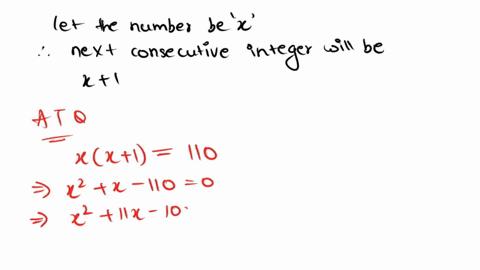 let the number be 'x'
∴ next consecutive integer will be
x+1
ATQ
x(x+1) = 110
⇒ x² + x - 110 = 0
⇒ x² + 11x - 10